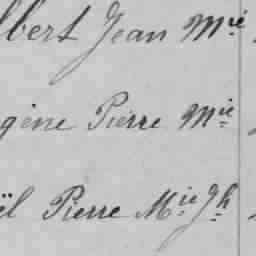 lbert Jean Mie
gène Pierre Mie
ël Pierre Mie Jh